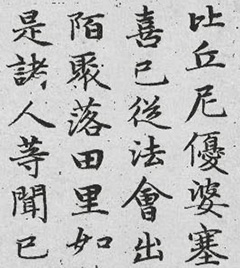 比丘尼優婆塞
喜已從法會出
陌聚落田里如
是諸人等聞已